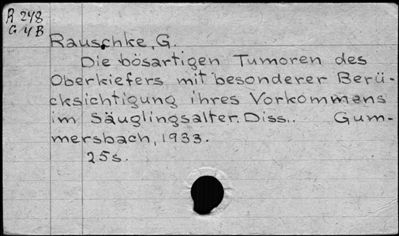 R 248
G 4 B
Rauschke, G.
Die bösartigen Tumoren des
Oberkiefers mit besonderer Berü-
cksichtigung ihres Vorkommens
im Säuglingsalter. Diss.. Gum-
mersbach, 1933.
25s.